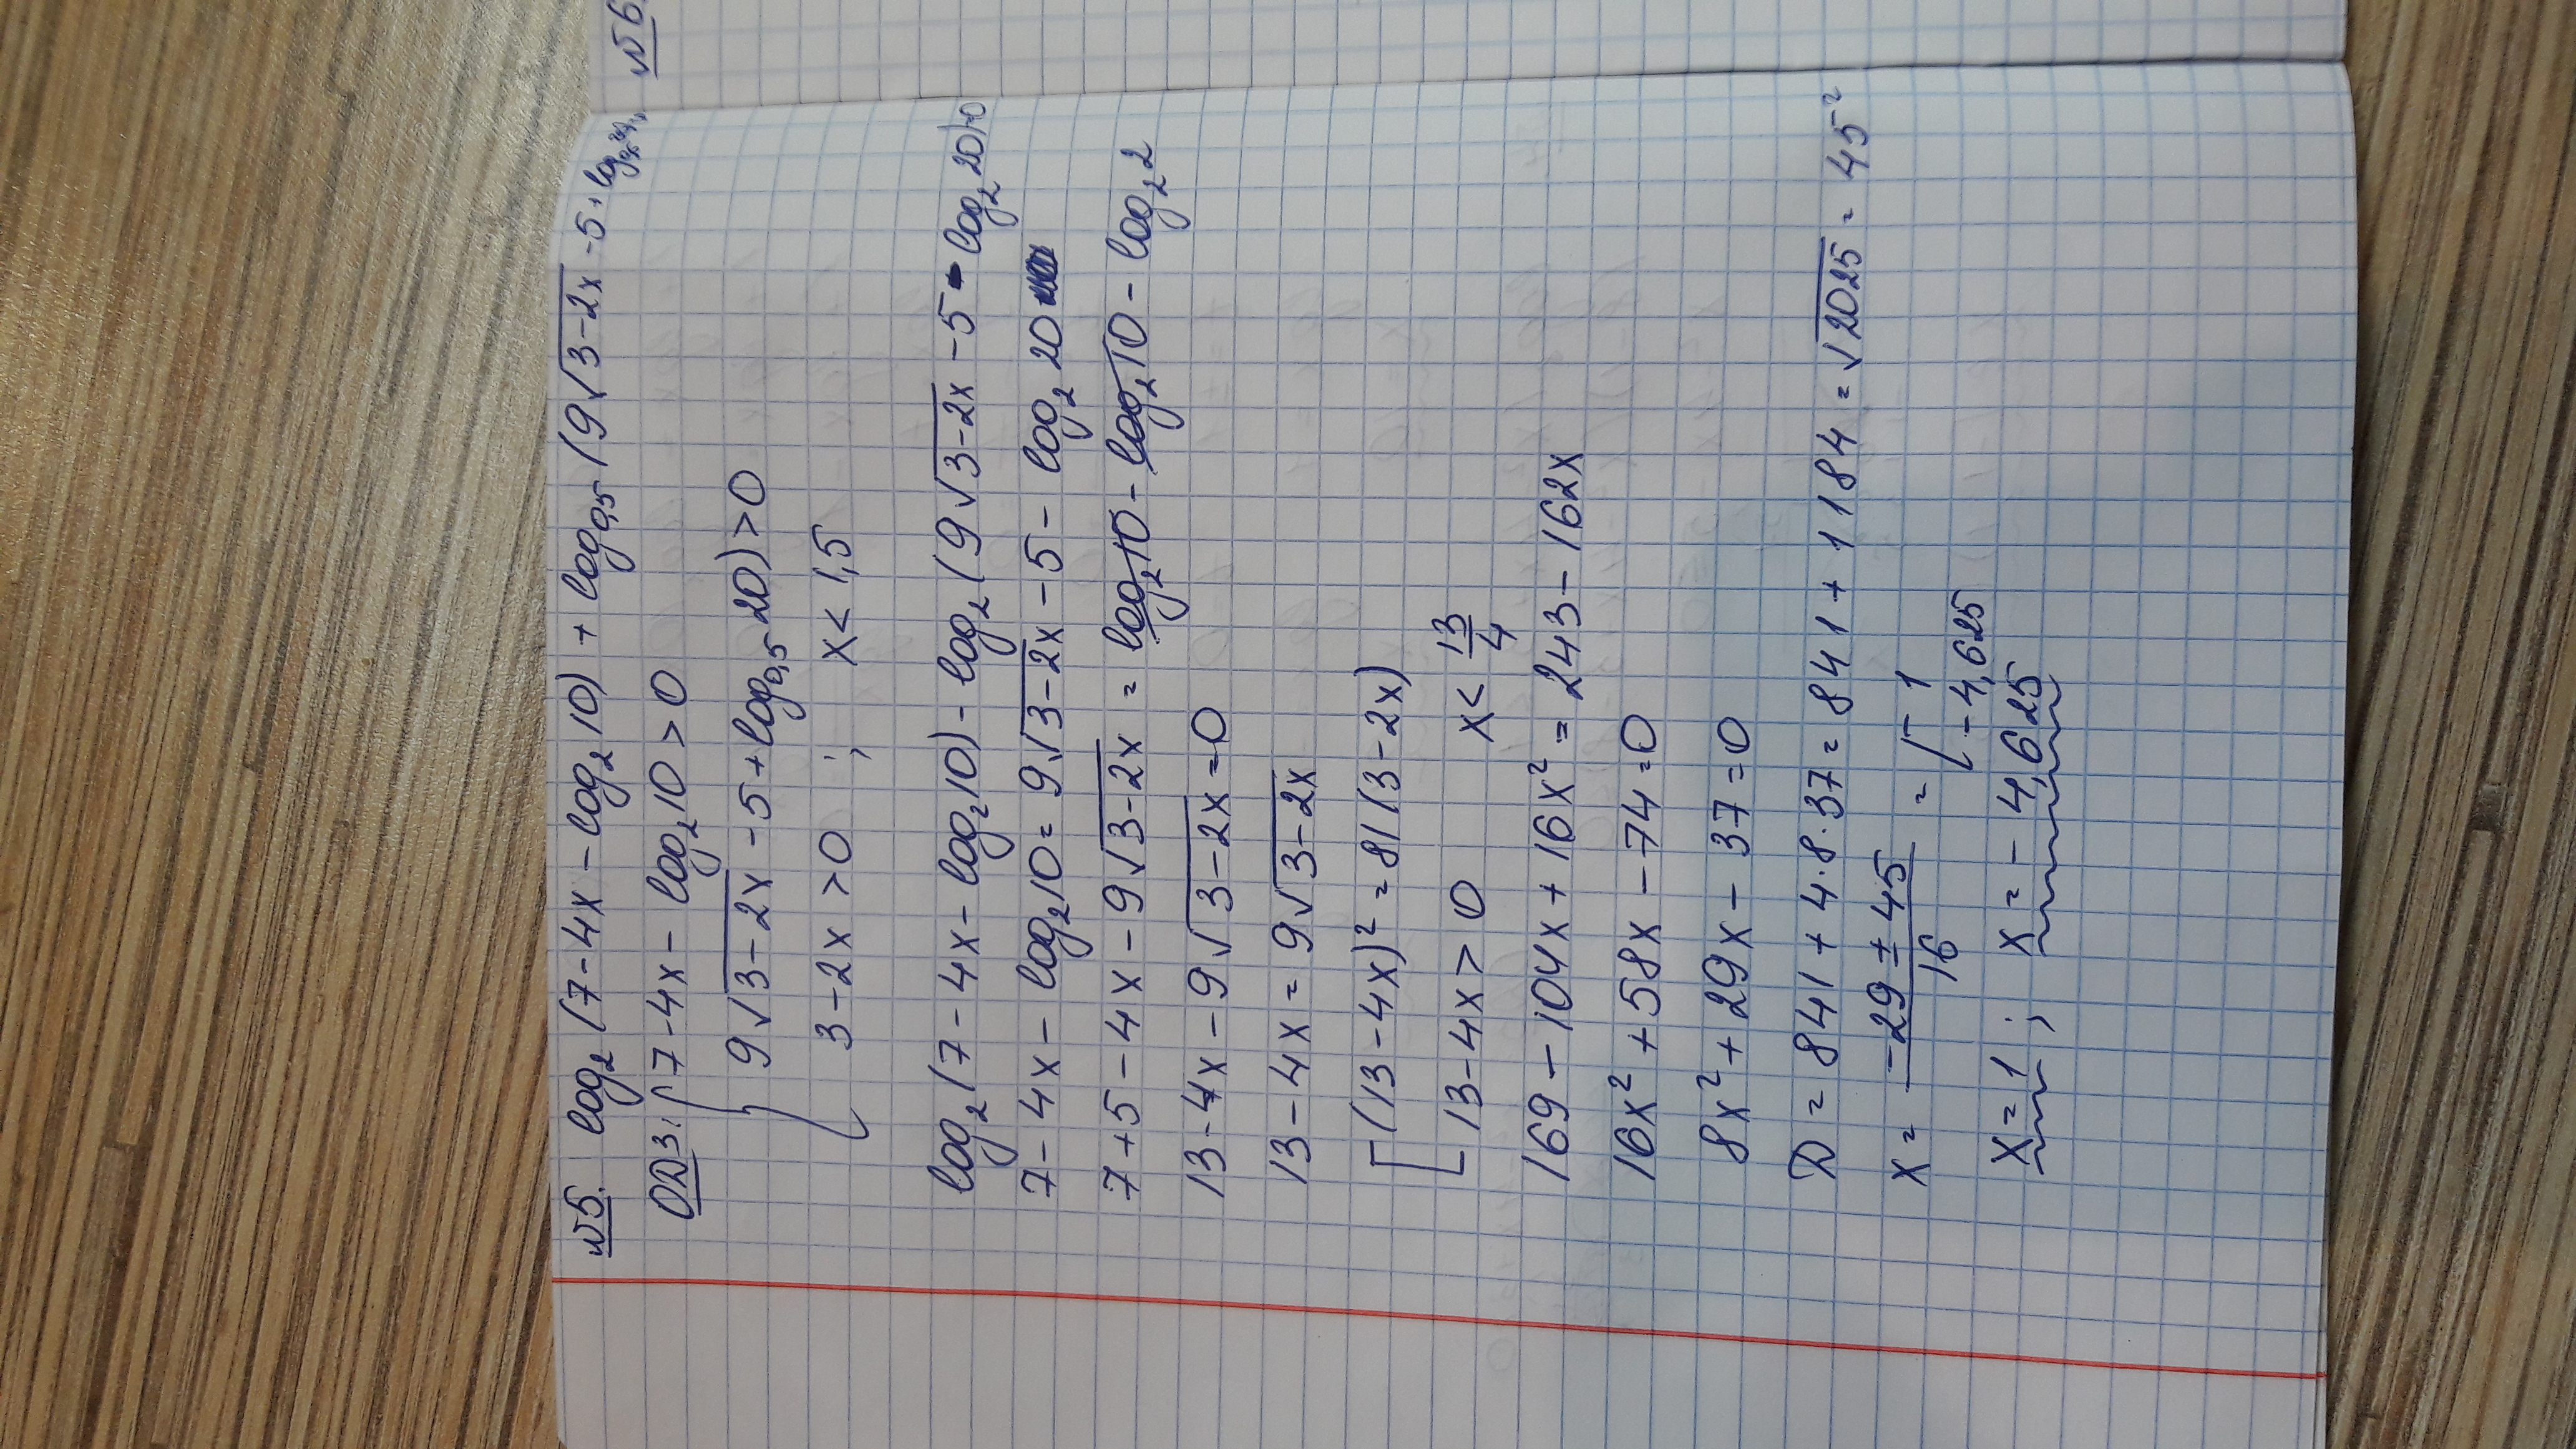 №5. log₂(7-4x-log₂10) + log₀,₅(9√3-2x -5+log
ОДЗ: { 7-4x-log₂10>0
9√3-2x -5+log₀,₅20)>0
3-2x>0 ; x<1,5
log₂(7-4x-log₂10)-log₂(9√3-2x -5-log₂20)=0
7-4x-log₂10=9√3-2x-5-log₂20
7+5-4x-9√3-2x = log₂10-log₂10-log₂2
13-4x-9√3-2x=0
13-4x=9√3-2x
[(13-4x)²=81(3-2x)
13-4x>0 x<13/4
169-104x+16x²=243-162x
16x²+58x-74=0
8x²+29x-37=0
D=841+4·8·37=841+1184=√2025=45²
x= -29±45/16 = [ 1
-4,625
x=1; x=-4,625
№6.